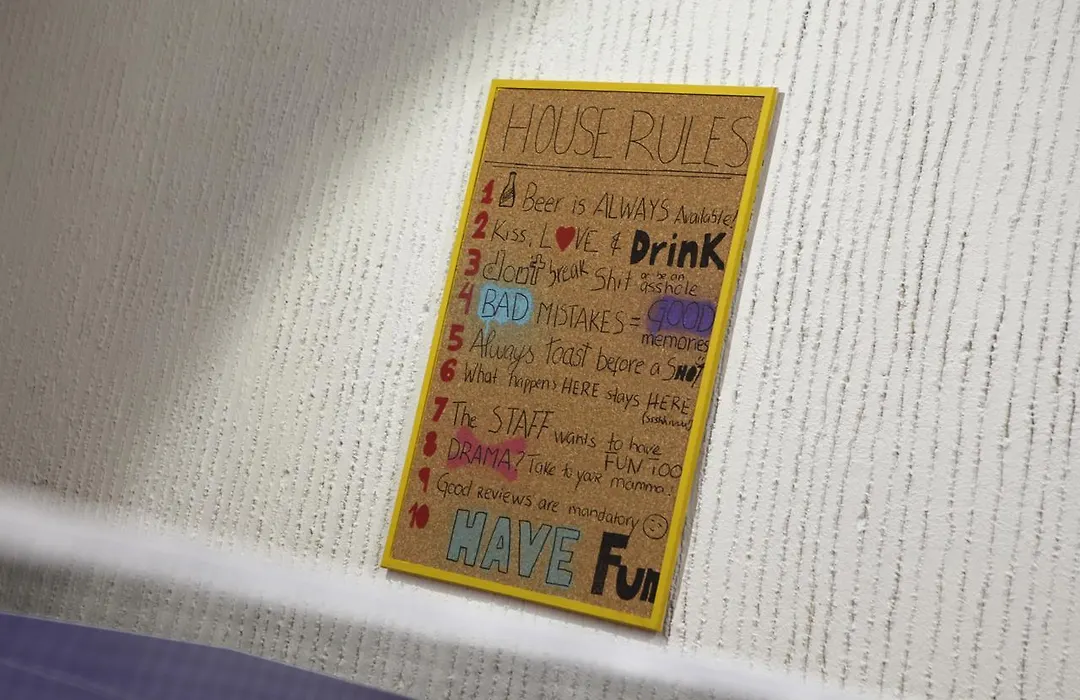 HOUSE RULES
1 Beer is ALWAYS Available!
2 Kiss, L♥VE & DrinK
3 don't break Shit or be an asshole
4 BAD MISTAKES = GOOD memories
5 Always toast before a SHOT
6 What happens HERE stays HERE
7 The STAFF wants to have FUN TOO
8 DRAMA? Take to your mamma!
9 Good Reviews are mandatory ☺
10 HAVE Fun